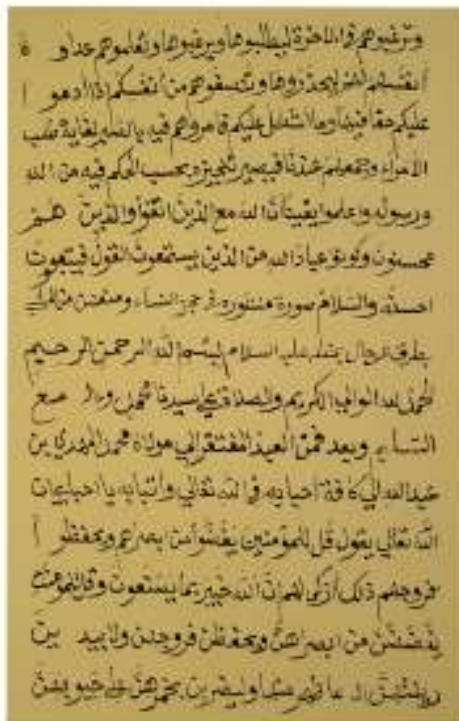 وترغبوهم في الاخرة ليطلبوها ويرغبوها وتعلموهم عداوة
أنفسهم ليحذروها وتنصفوهم من أنفسكم إذا ادعوا
عليكم حقا فيها وما اشكل عليكم فامروهم فيه بالصبر لغاية طلب
الامراء وجمعهم عندنا فيصير تنجيزه بحسب الحكم فيه من الله
ورسوله واعلموا يقينا أن الله مع الذين اتقوا والذين هم
محسنون وكونوا عباد الله من الذين يستمعون القول فيتبعون
احسنه والسلام صورة منشوره في حجز النساء ومنعهن من
بطرق الرجال عليه السلام بسم الله الرحمن الرحيم
الحمد لله الوالي الكريم والصلاة على سيدنا محمد واله مع
التسليم وبعد فمن العبد المفتقر الي مولاه محمد المهدي بن
عبد الله الي كافة احبابه في الله تعالي يا احبابي ان
الله تعالي يقول قل للمؤمنين يغضوا من ابصارهم ويحفظوا
فروجهم ذلك أزكي لهم ان الله خبير بما يصنعون وقل للمؤمنات
يغضضن من ابصارهن ويحفظن فروجهن ولا يبدين
زينتهن الا ما ظهر منها وليضربن بخمرهن على جيوبهن